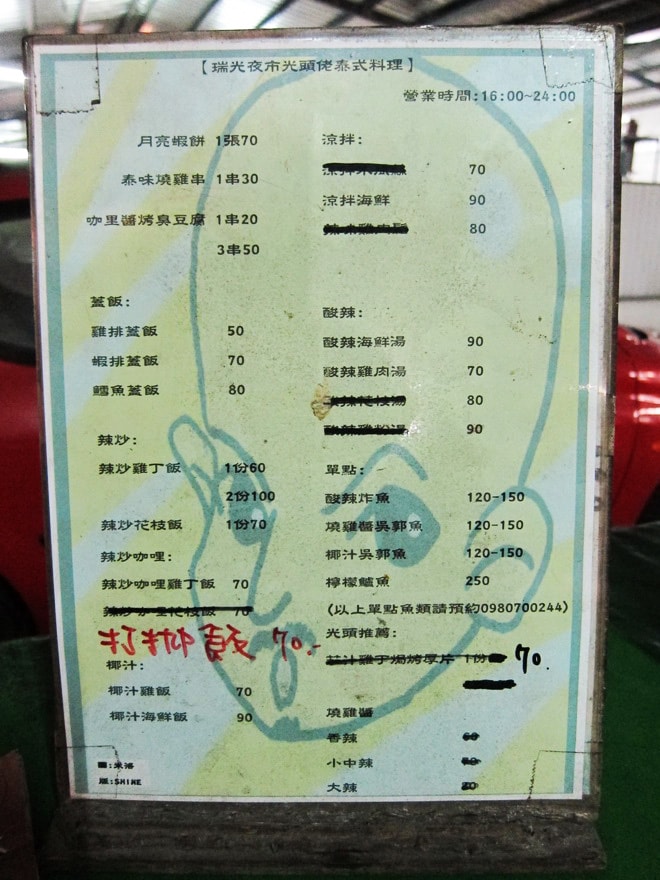 【瑞光夜市光頭佬泰式料理】
營業時間:16:00~24:00
月亮蝦餅 1張70
泰味燒雞串 1串30
咖里醬烤臭豆腐 1串20
3串50
蓋飯:
雞排蓋飯 50
蝦排蓋飯 70
鱈魚蓋飯 80
辣炒:
辣炒雞丁飯 1份60
2份100
辣炒花枝飯 1份70
辣炒咖哩:
辣炒咖哩雞丁飯 70
辣炒咖哩花枝飯 70
打拋 飯 70.-
椰汁:
椰汁雞飯 70
椰汁海鮮飯 90
圖:米洛
版:SHINE
涼拌:
70
涼拌海鮮 90
80
酸辣:
酸辣海鮮湯 90
酸辣雞肉湯 70
酸辣花枝湯 80
酸辣雞粉湯 90
單點:
酸辣炸魚 120-150
燒雞醬吳郭魚 120-150
椰汁吳郭魚 120-150
檸檬鱸魚 250
(以上單點魚類請預約0980700244)
光頭推薦:
汁雞丁焗烤厚片 1份 70.
燒雞醬
香辣
小中辣
大辣